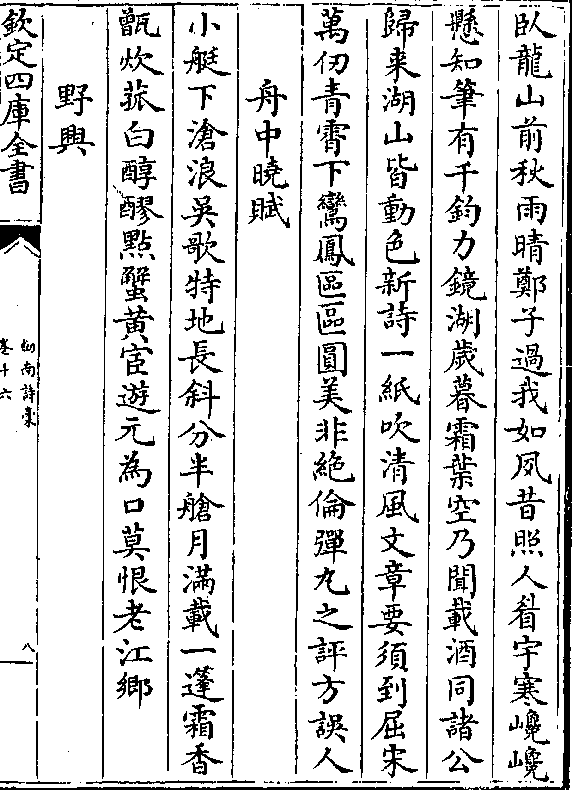 臥龍山前秋雨晴鄭子過我如夙昔照人眉宇寒巉巉
懸知筆有千鈞力鏡湖歲暮霜葉空乃聞載酒同諸公
歸来湖山皆動色新詩一紙吹清風文章要須到屈宋
萬仞青霄下鸞鳳區區圓美非絶倫彈丸之評方誤人
舟中曉賦
小艇下滄浪吳歌特地長斜分半艙月滿載一蓬霜香
甑炊菰白醇醪點蟹黄宦遊元為口莫恨老江鄉
野興
欽定四庫全書
劍南詩稾
卷十六
八